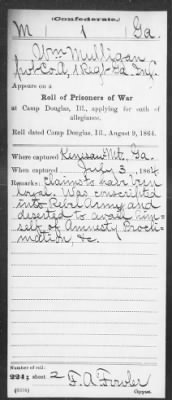 (Confederate.)
M 1 Ga.
Wm Mulligan
pvt Co. A, 1 Reg't Ga. Inf.
Appears on a
Roll of Prisoners of War
at Camp Douglas, Ill., applying for oath of
allegiance.
Roll dated Camp Douglas, Ill., August 9, 1864.
Where captured Kenesaw Mt., Ga.
When captured July 3, 1864
Remarks: Claims to have been
loyal. Was conscripted
into Rebel Army and
deserted to avail him-
self of Amnesty Procla-
mation, &c.
Number of roll:
224; sheet 2
F. A. Fowler
Copyist.